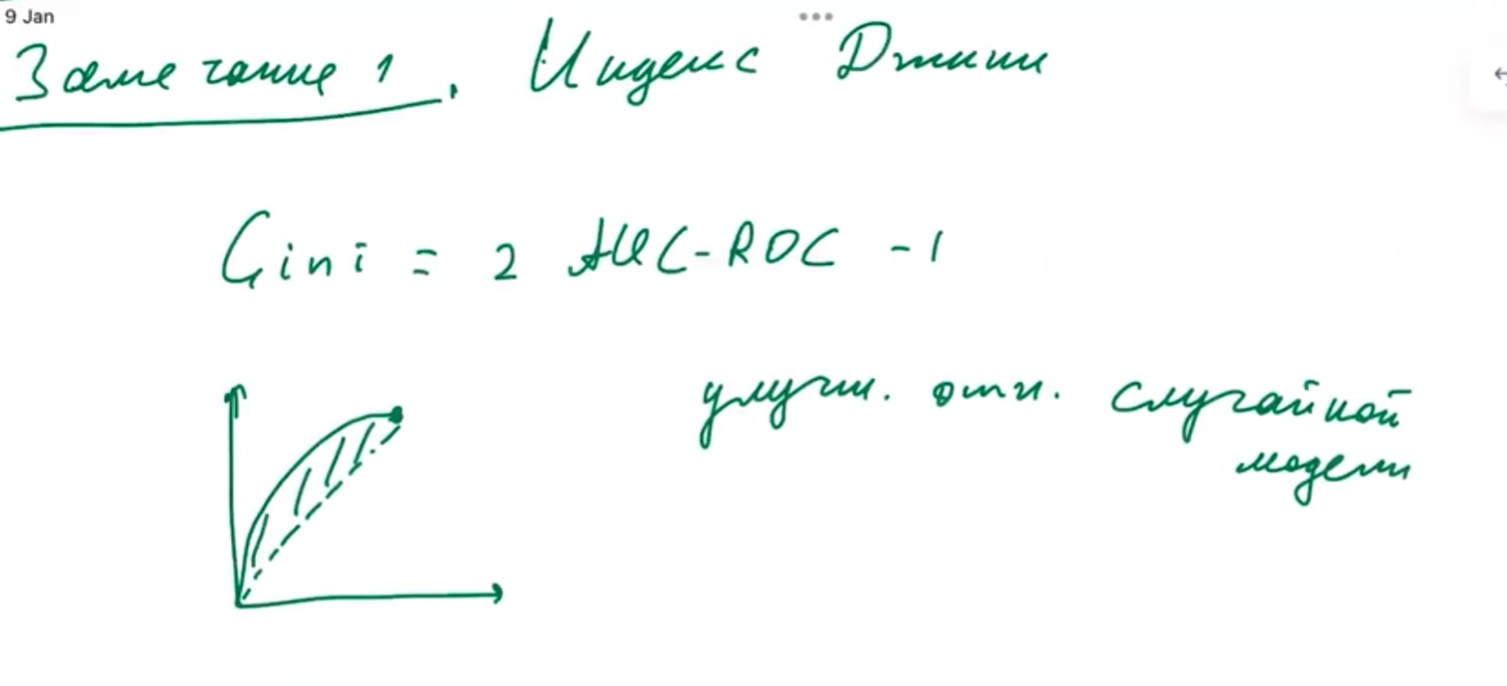 9 Jan
Замечание 1. Индекс Джини
Gini = 2 AUC-ROC - 1
улучш. отн. случайной
модели